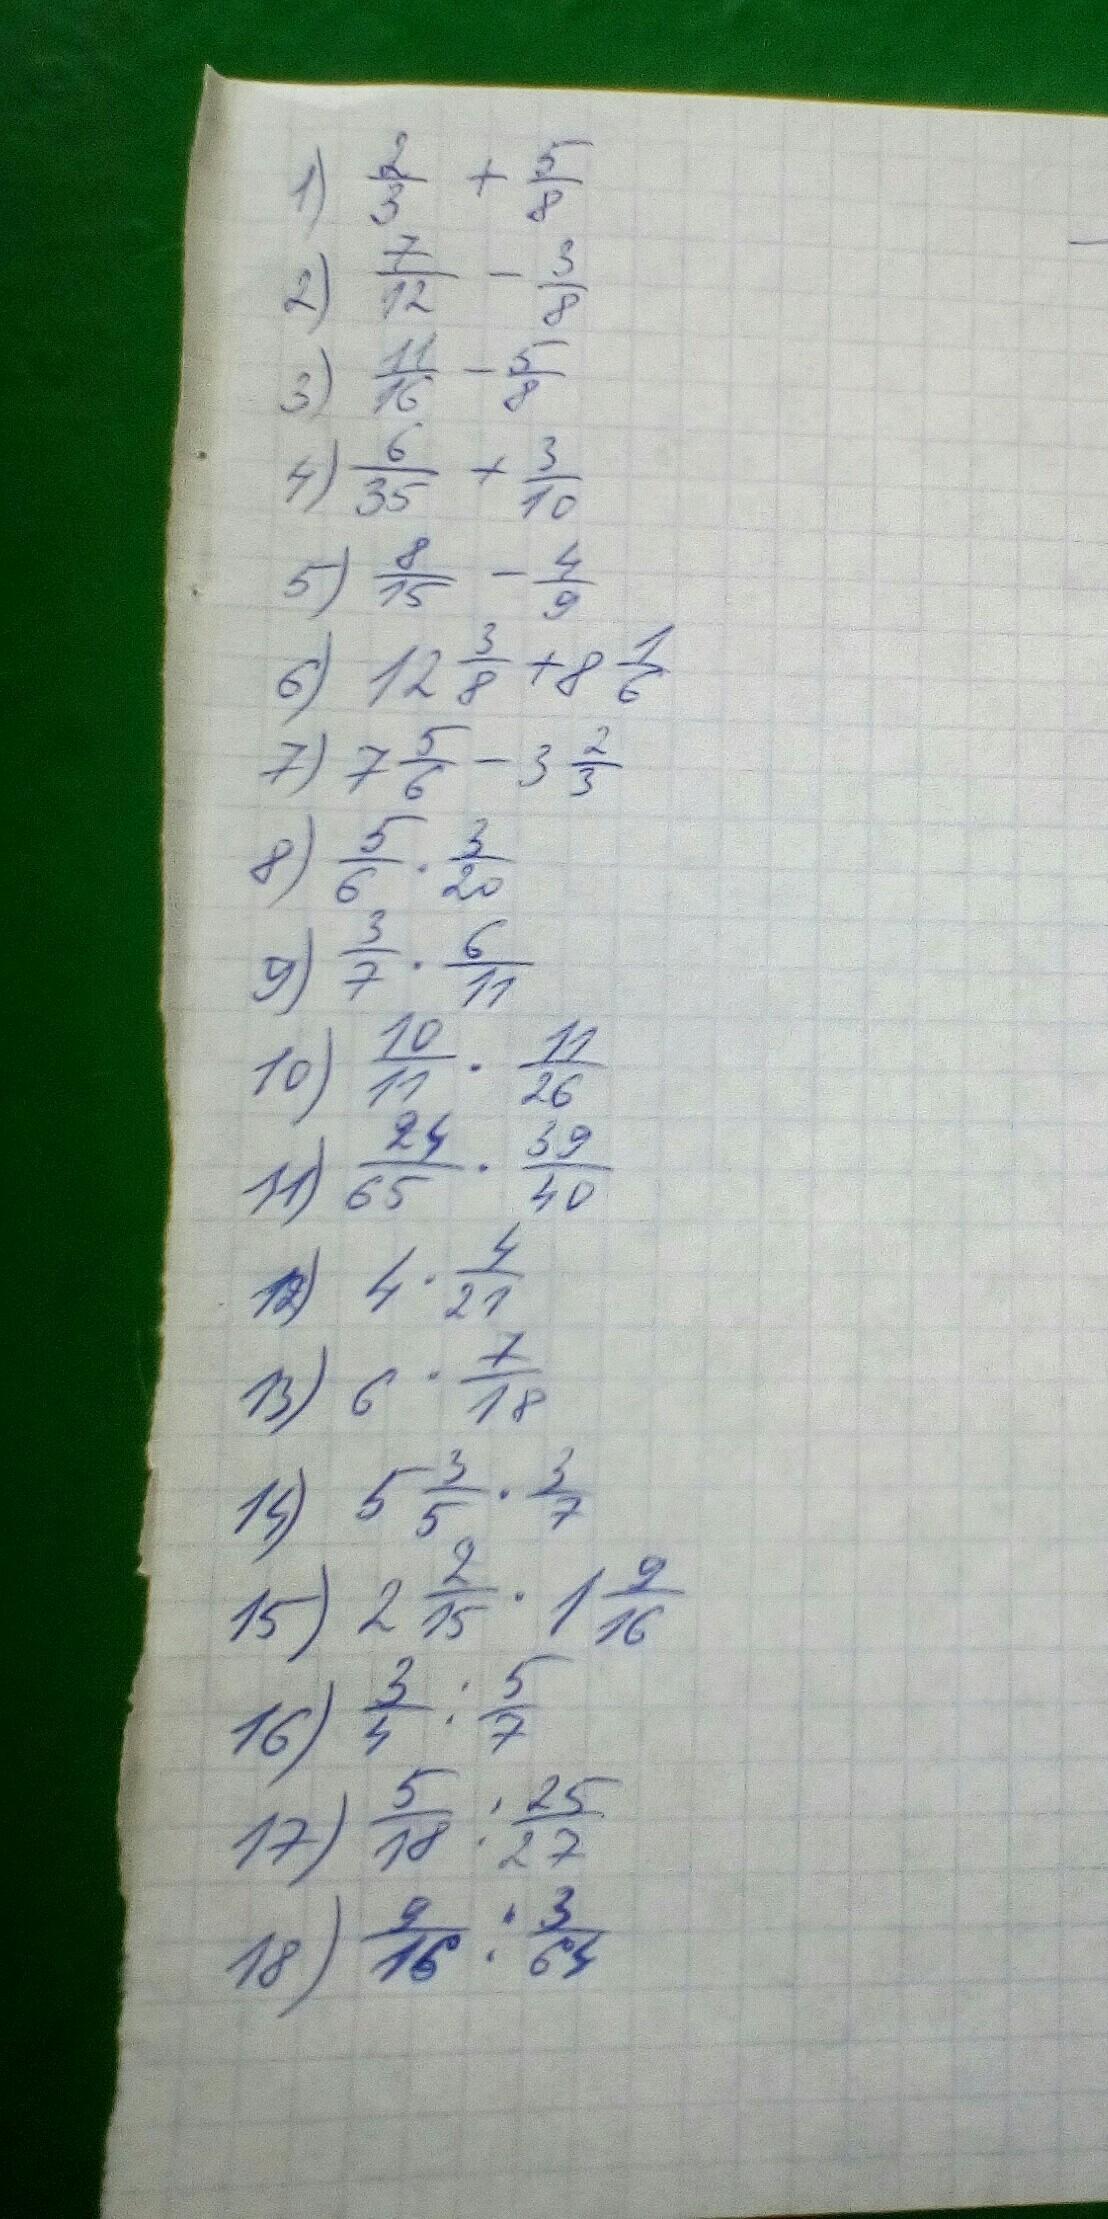 1) 2/3 + 5/8
2) 7/12 - 3/8
3) 11/16 - 5/8
4) 6/35 + 3/10
5) 8/15 - 4/9
6) 12 3/8 + 8 1/6
7) 7 5/6 - 3 2/3
8) 5/6 · 3/20
9) 3/7 · 6/11
10) 10/11 · 11/26
11) 24/65 · 39/40
12) 4 · 4/21
13) 6 · 7/18
14) 5 3/5 · 3/7
15) 2 2/15 · 1 9/16
16) 3/4 : 5/7
17) 5/18 : 25/27
18) 9/16 : 3/64